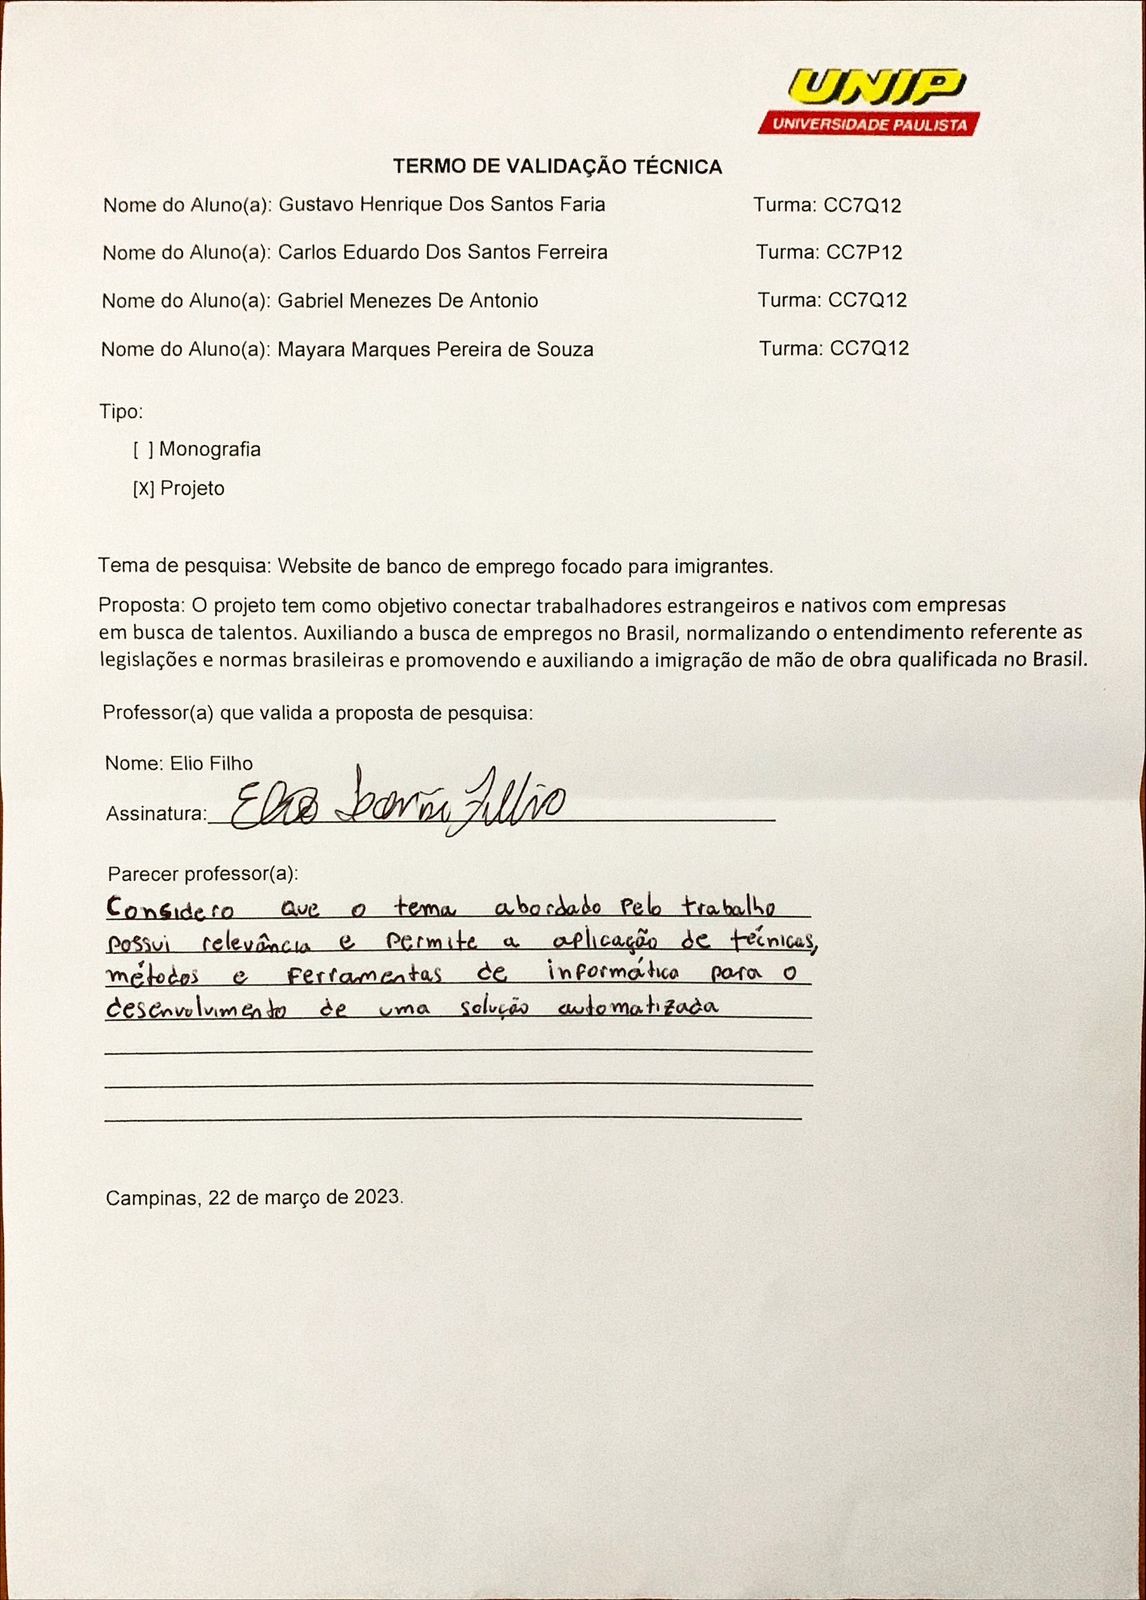 UNIP
UNIVERSIDADE PAULISTA
TERMO DE VALIDAÇÃO TÉCNICA
Nome do Aluno(a): Gustavo Henrique Dos Santos Faria Turma: CC7Q12
Nome do Aluno(a): Carlos Eduardo Dos Santos Ferreira Turma: CC7P12
Nome do Aluno(a): Gabriel Menezes De Antonio Turma: CC7Q12
Nome do Aluno(a): Mayara Marques Pereira de Souza Turma: CC7Q12
Tipo:
[ ] Monografia
[X] Projeto
Tema de pesquisa: Website de banco de emprego focado para imigrantes.
Proposta: O projeto tem como objetivo conectar trabalhadores estrangeiros e nativos com empresas
em busca de talentos. Auxiliando a busca de empregos no Brasil, normalizando o entendimento referente as
legislações e normas brasileiras e promovendo e auxiliando a imigração de mão de obra qualificada no Brasil.
Professor(a) que valida a proposta de pesquisa:
Nome: Elio Filho
Assinatura: Elio Filho
Parecer professor(a):
Considero que o tema abordado pelo trabalho
possui relevância e permite a aplicação de técnicas,
métodos e ferramentas de informática para o
desenvolvimento de uma solução automatizada
Campinas, 22 de março de 2023.